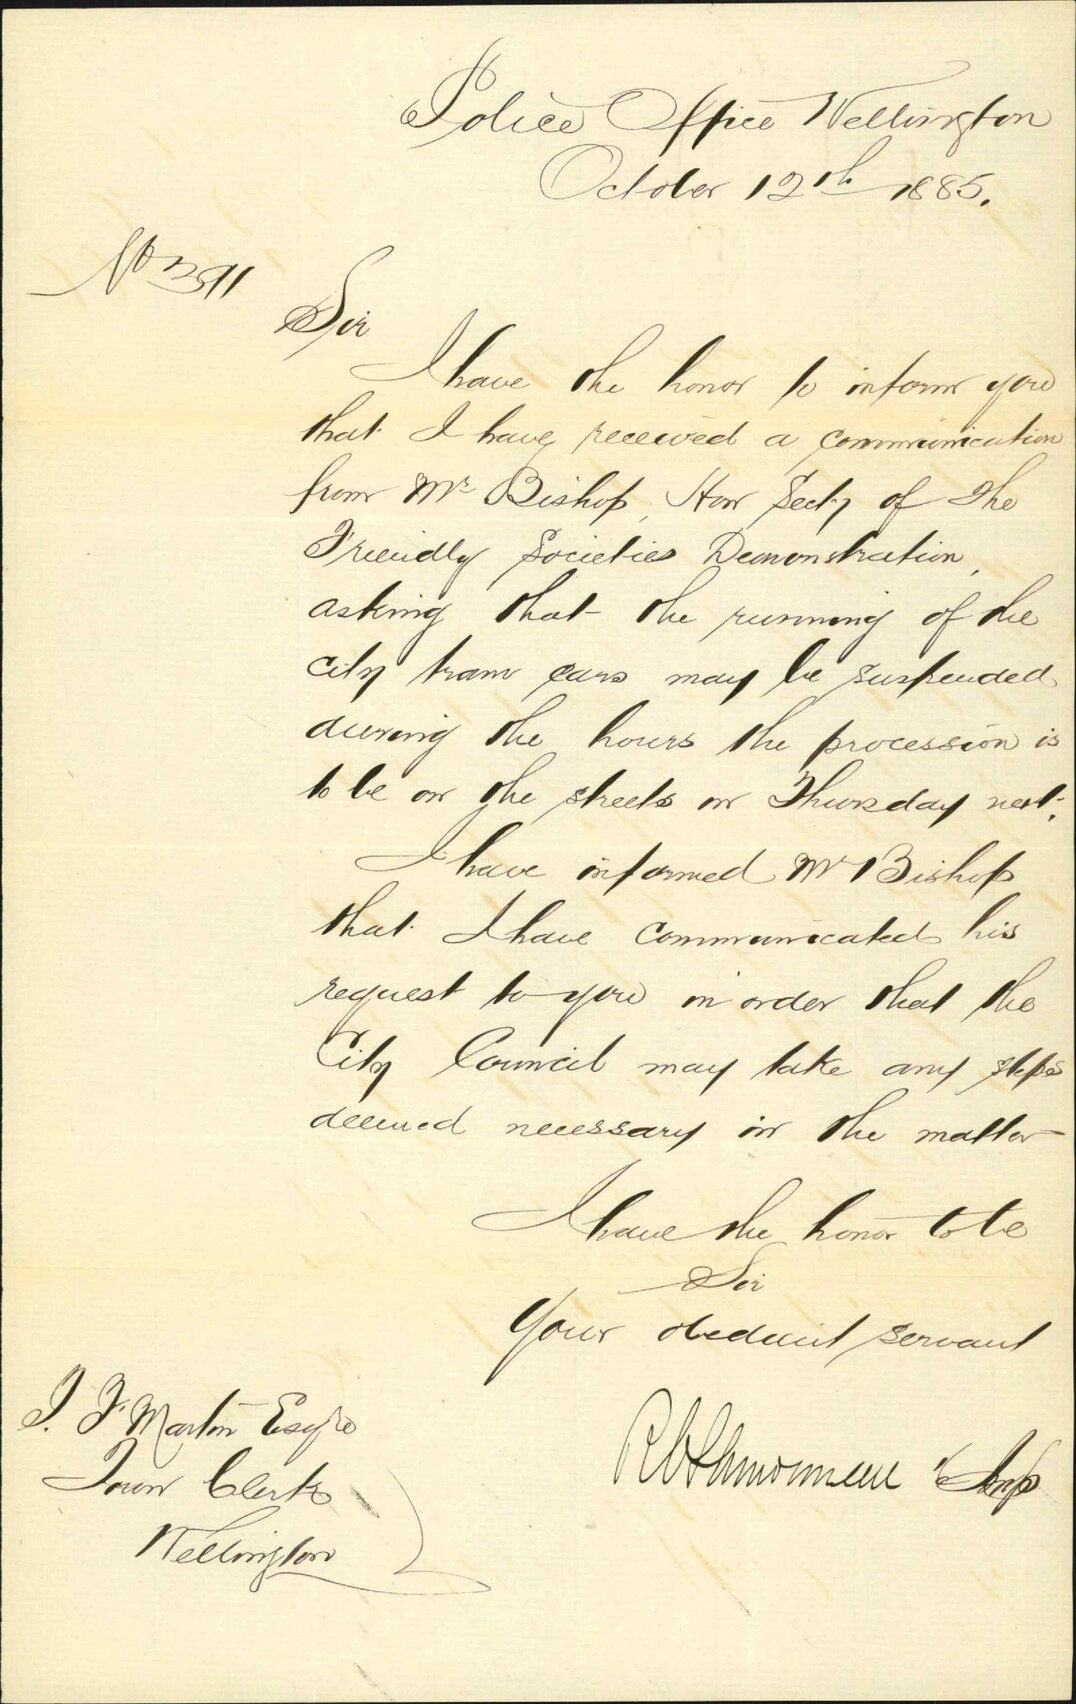 Police Office Wellington
October 12th 1885.
No 391
Sir
I have the honor to inform you
that I have received a communication
from Mr Bishop, Hon Secty of the
Friendly Societies Demonstration,
asking that the running of the
city tram cars may be suspended
during the hours the procession is
to be on the streets on Thursday next.
I have informed Mr Bishop
that I have communicated his
request to you in order that the
City Council may take any steps
deemed necessary in the matter
I have the honor to be
Sir
Your obedient servant
Insp
J. F. Martin Esqre
Town Clerk
Wellington